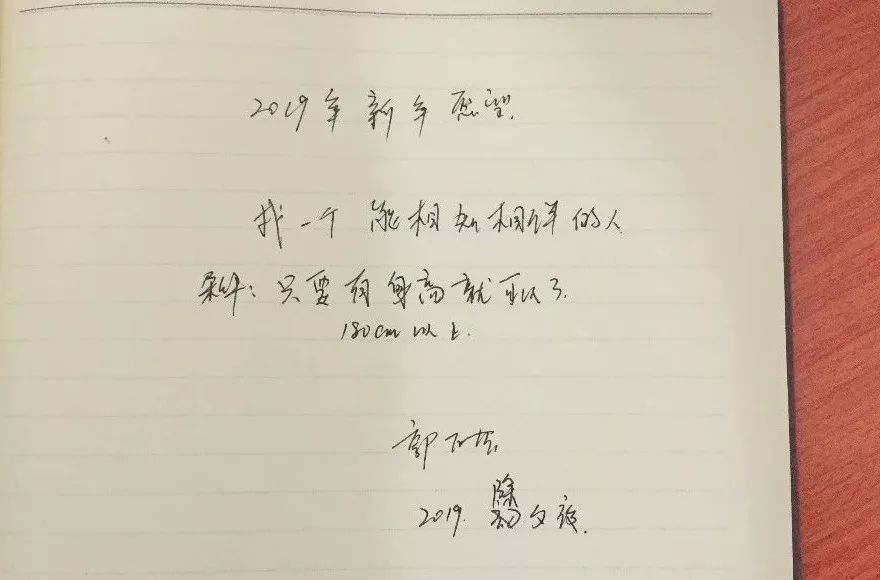 2019年新年愿望.
找一个能相知相伴的人.
条件:只要有身高就可以了.
180cm以上.
郭
2019.除夕夜.